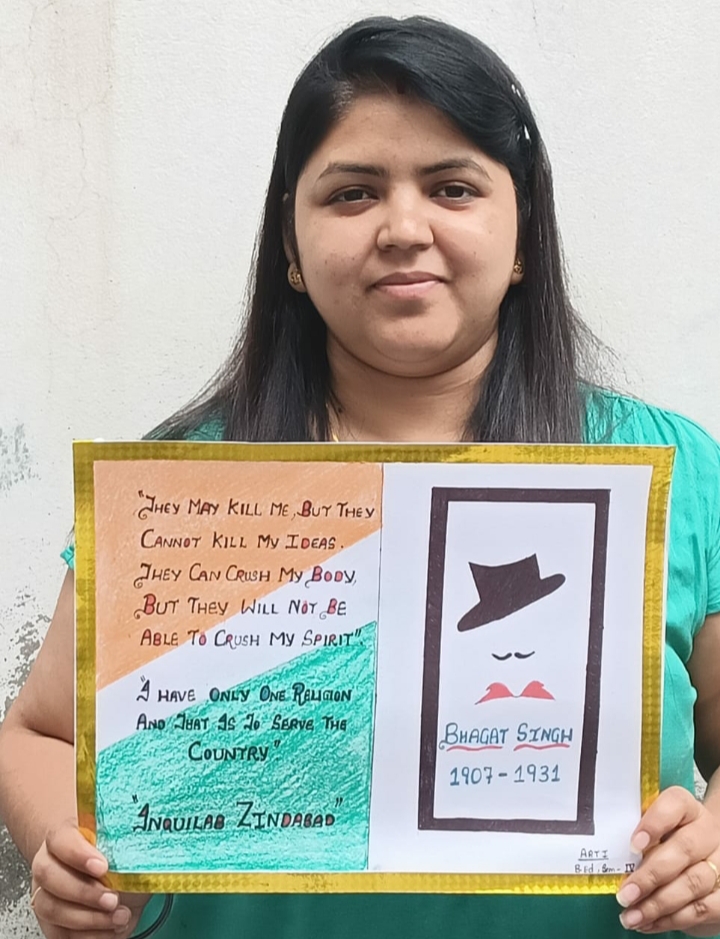 "They May Kill Me, But They
Cannot Kill My Ideas.
They Can Crush My Body,
But They Will Not Be
Able To Crush My Spirit"
"I Have Only One Religion
And That Is To Serve The
Country"
"Inquilab Zindabad"
Bhagat Singh
1907-1931
Arti
B.Ed, Sem-IV